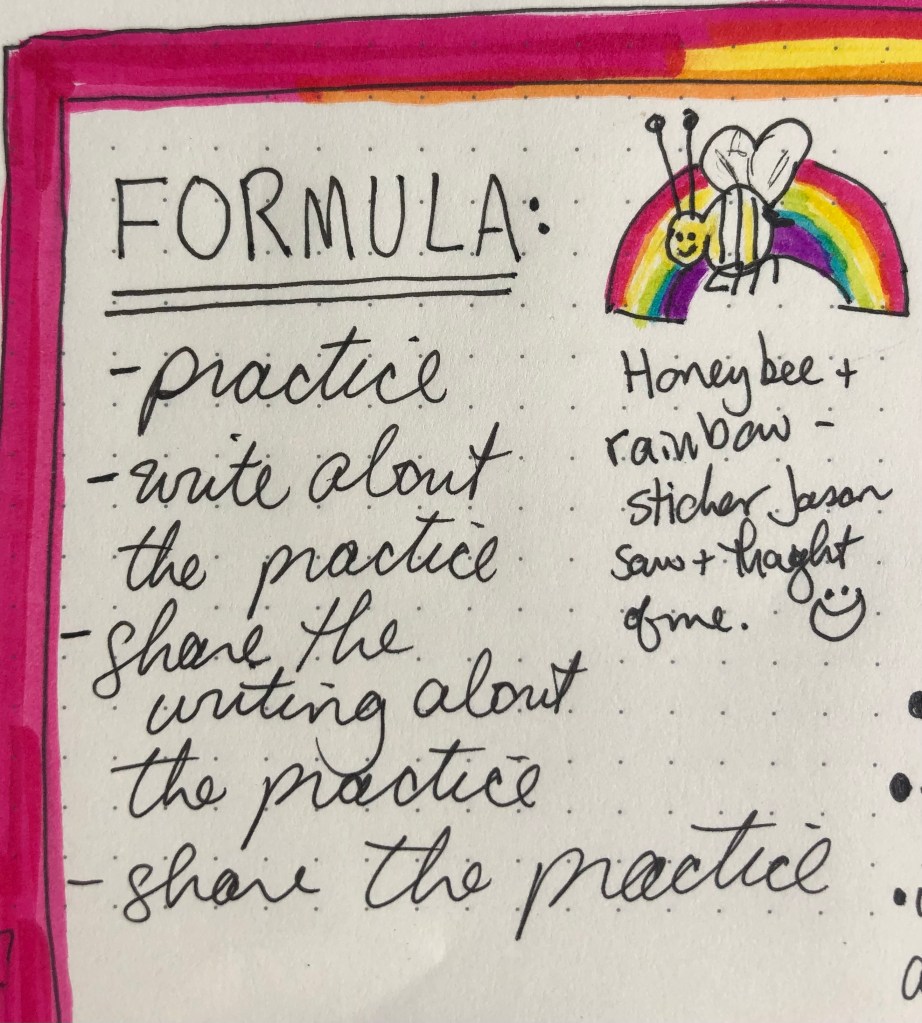 FORMULA:
- practice
- write about
the practice
- share the
writing about
the practice
- share the practice
Honeybee +
rainbow -
sticker Jason
saw + thought
of me.